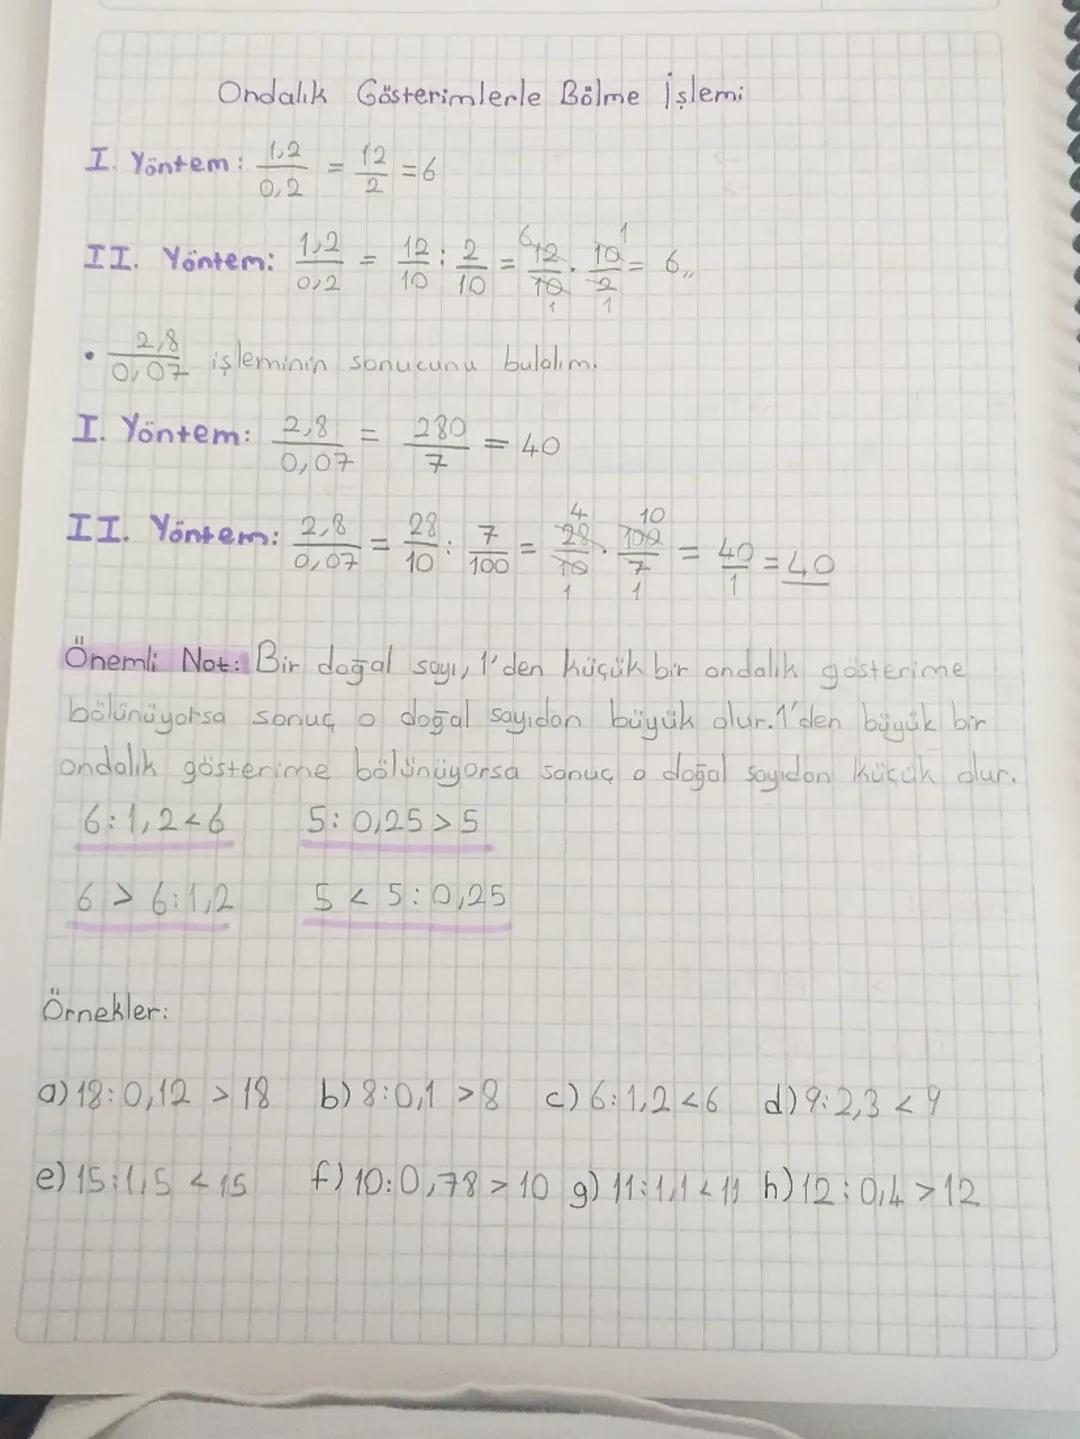 Ondalık Gösterimlerle Bölme İşlemi
I. Yöntem: 1,2/0,2 = 12/2 = 6
II. Yöntem: 1,2/0,2 = 12/10 : 2/10 = 6 12/10 1 . 10 1/2 1 = 6,,
• 2,8/0,07 işleminin sonucunu bulalım.
I. Yöntem: 2,8/0,07 = 280/7 = 40
II. Yöntem: 2,8/0,07 = 28/10 : 7/100 = 4 28/10 1 . 10 100/7 1 = 40/1 = 40
Önemli Not: Bir doğal sayı, 1'den küçük bir ondalık gösterime
bölünüyorsa sonuç o doğal sayıdan büyük olur. 1'den büyük bir
ondalık gösterime bölünüyorsa sonuç o doğal sayıdan küçük olur.
6:1,2<6 5:0,25>5
6 > 6:1,2 5 < 5:0,25
Örnekler:
a) 18:0,12 > 18 b) 8:0,1 >8 c) 6:1,2 <6 d) 9:2,3 < 9
e) 15:1,5 < 15 f) 10:0,78 > 10 g) 11:1,1 < 11 h) 12:0,4 > 12